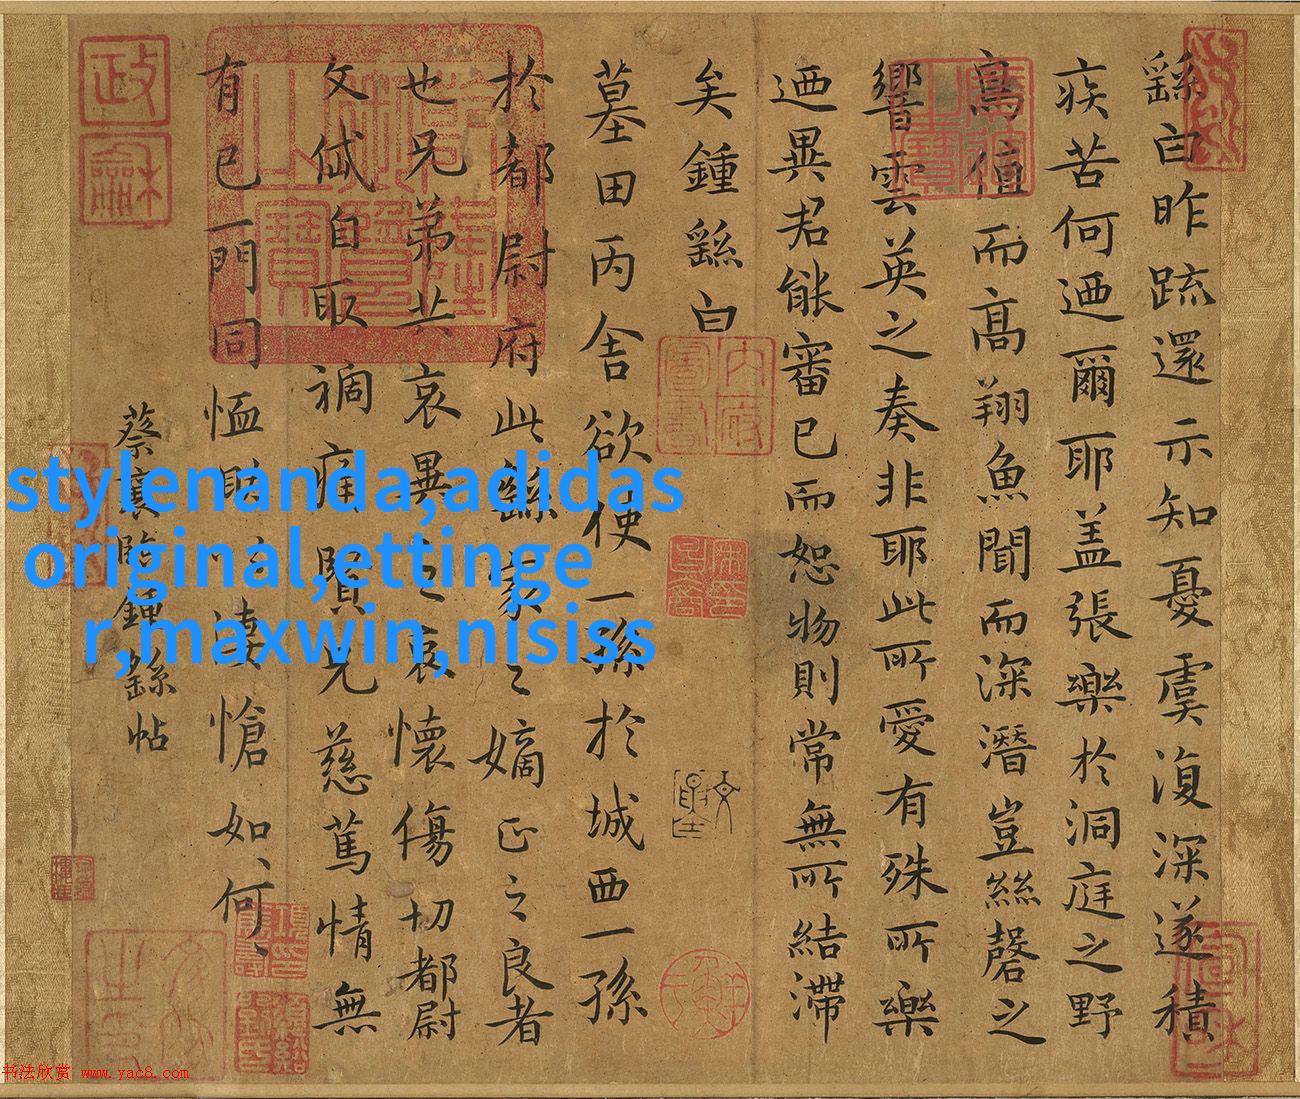 繇白昨疏還示知憂虞復深遂積
疾苦何迺爾耶盖張樂於洞庭之野
鳥值而高翔魚聞而深潛豈絲磬之
響雲英之奏非耶此所愛有殊所樂
迺異君能審己而恕物則常無所結滯
矣鍾繇白
墓田丙舍欲使一孫於城西一孫
於都尉府此繇家之嫡正之良者
也兄弟共哀異之哀懷傷切都尉
文岱自取禍痛賢兄慈篤情無
有已一門同恤助以悽愴如、何、
蔡襄臨鍾繇帖
政龢
内府圖書
stylenanda,adidas
original,ettinge
r,maxwin,nisiss
书法欣赏 www.yac8.com